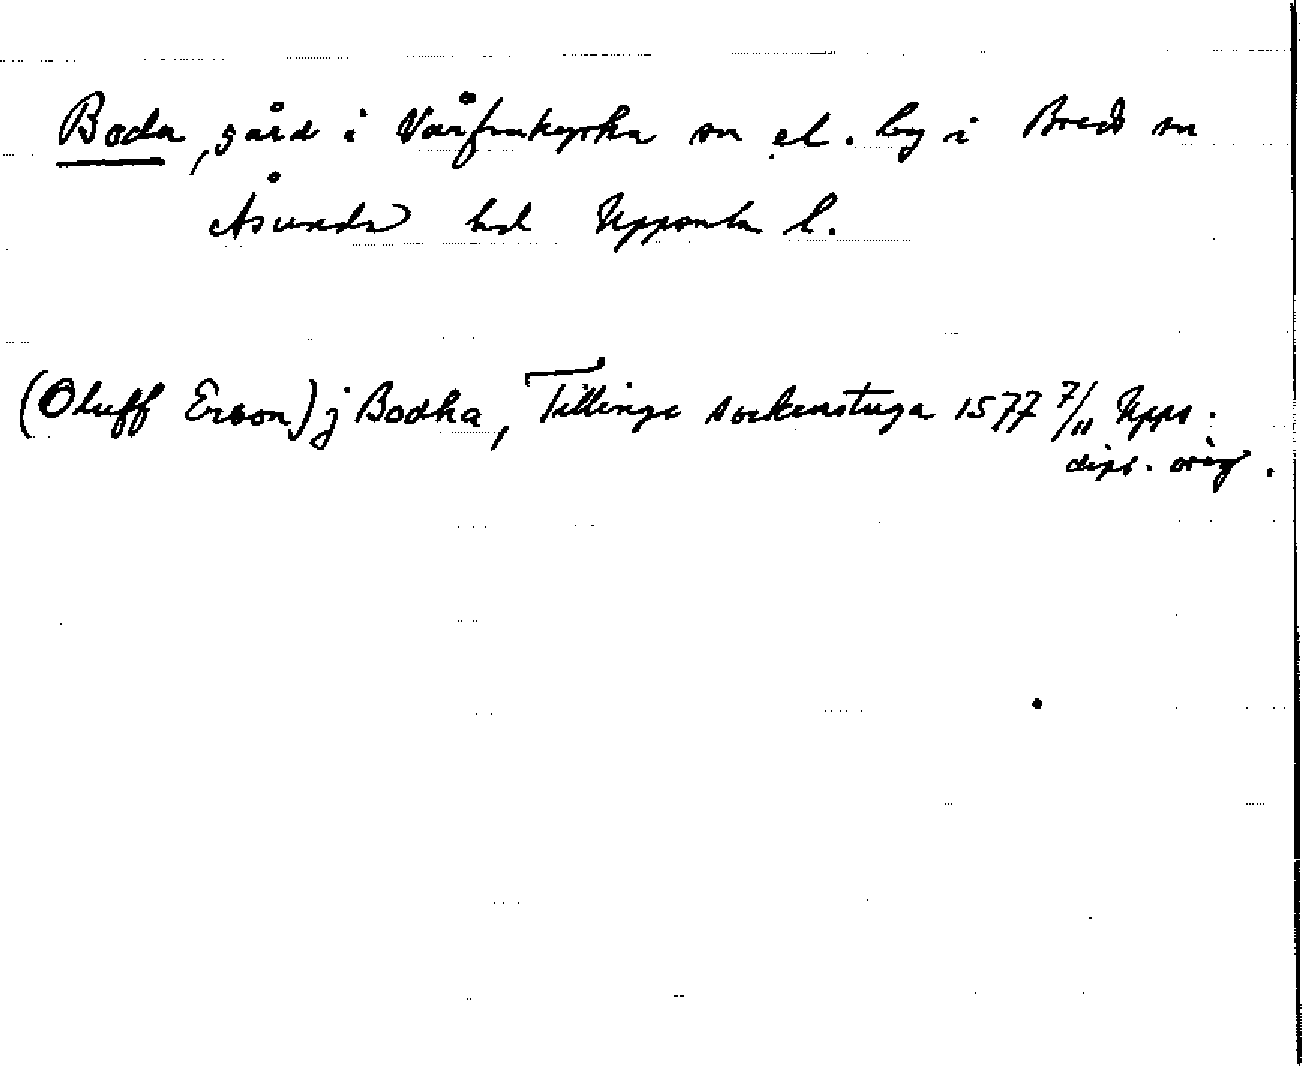 Boda, gård i Vårfrukyrka sn el. by i Breds sn
Åsunda hd Uppsala l.
(Oluff Ersson) j Bodha, Tillinge sockenstuga 1577 7/11 Upps.
dipl. orig.